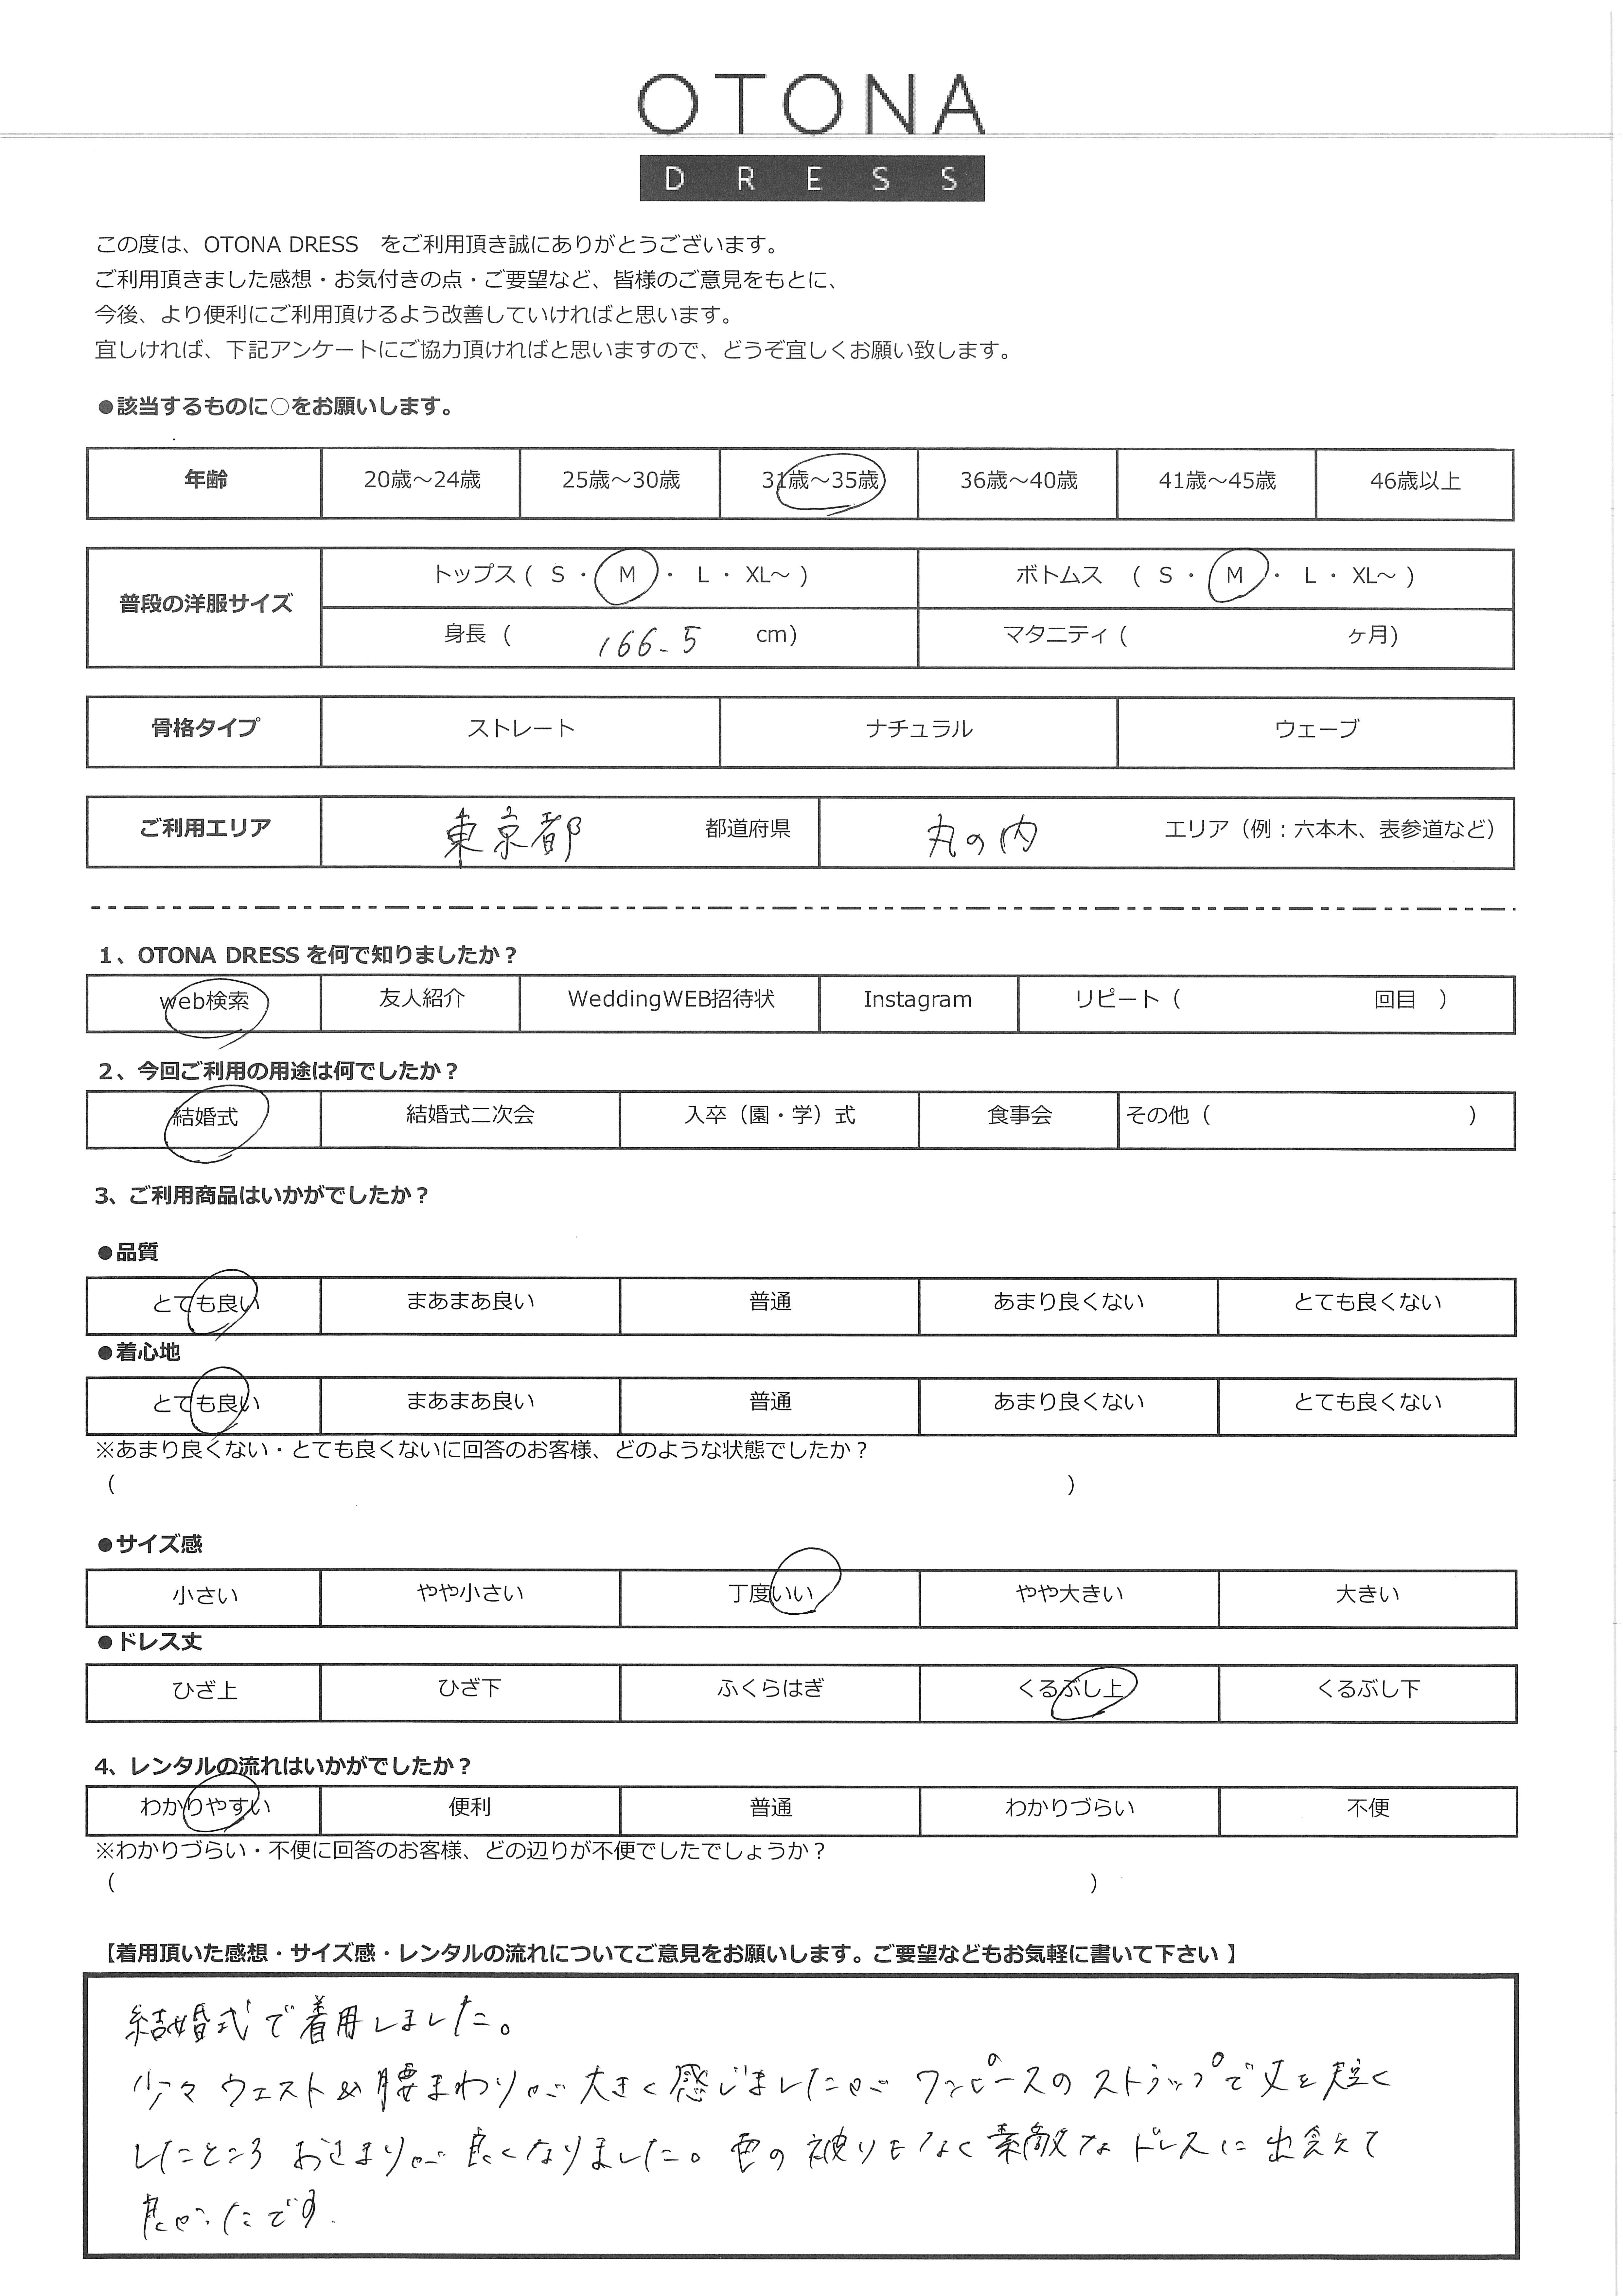 OTONA
DRESS
この度は、OTONA DRESS　をご利用頂き誠にありがとうございます。
ご利用頂きました感想・お気付きの点・ご要望など、皆様のご意見をもとに、
今後、より便利にご利用頂けるよう改善していければと思います。
宜しければ、下記アンケートにご協力頂ければと思いますので、どうぞ宜しくお願い致します。
●該当するものに○をお願いします。
年齢 20歳～24歳 25歳～30歳 31歳～35歳 36歳～40歳 41歳～45歳 46歳以上
普段の洋服サイズ トップス ( S ・ M ・ L ・ XL～ ) ボトムス ( S ・ M ・ L ・ XL～ )
身長 ( 166.5 cm) マタニティ ( ヶ月)
骨格タイプ ストレート ナチュラル ウェーブ
ご利用エリア 東京都 都道府県 丸の内 エリア（例：六本木、表参道など）
1、OTONA DRESS を何で知りましたか？
web検索 友人紹介 WeddingWEB招待状 Instagram リピート（ 回目 ）
2、今回ご利用の用途は何でしたか？
結婚式 結婚式二次会 入卒（園・学）式 食事会 その他（ ）
3、ご利用商品はいかがでしたか？
●品質
とても良い まあまあ良い 普通 あまり良くない とても良くない
●着心地
とても良い まあまあ良い 普通 あまり良くない とても良くない
※あまり良くない・とても良くないに回答のお客様、どのような状態でしたか？
（ ）
●サイズ感
小さい やや小さい 丁度いい やや大きい 大きい
●ドレス丈
ひざ上 ひざ下 ふくらはぎ くるぶし上 くるぶし下
4、レンタルの流れはいかがでしたか？
わかりやすい 便利 普通 わかりづらい 不便
※わかりづらい・不便に回答のお客様、どの辺りが不便でしたでしょうか？
（ ）
【着用頂いた感想・サイズ感・レンタルの流れについてご意見をお願いします。ご要望などもお気軽に書いて下さい 】
結婚式で着用しました。
少々ウェスト&腰まわりが大きく感じましたがワンピースのストラップで丈を短く
したところ おさまりが良くなりました。色の被りもなく素敵なドレスに出会えて
良かったです.